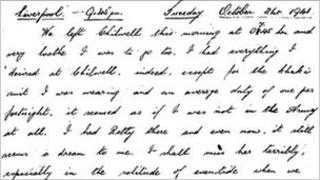 Liverpool - Tuesday October 21st 1941.
We left Chilwell this morning at and
very loathe I was to go too. I had everything I
desired at Chilwell, indeed, except for the khaki
suit I was wearing and an average duty of one per
fortnight, it seemed as if I was not in the Army
at all. I had Betty there and even now, it still
seems a dream to me. I shall miss her terribly,
especially in the solitude of eventide when we